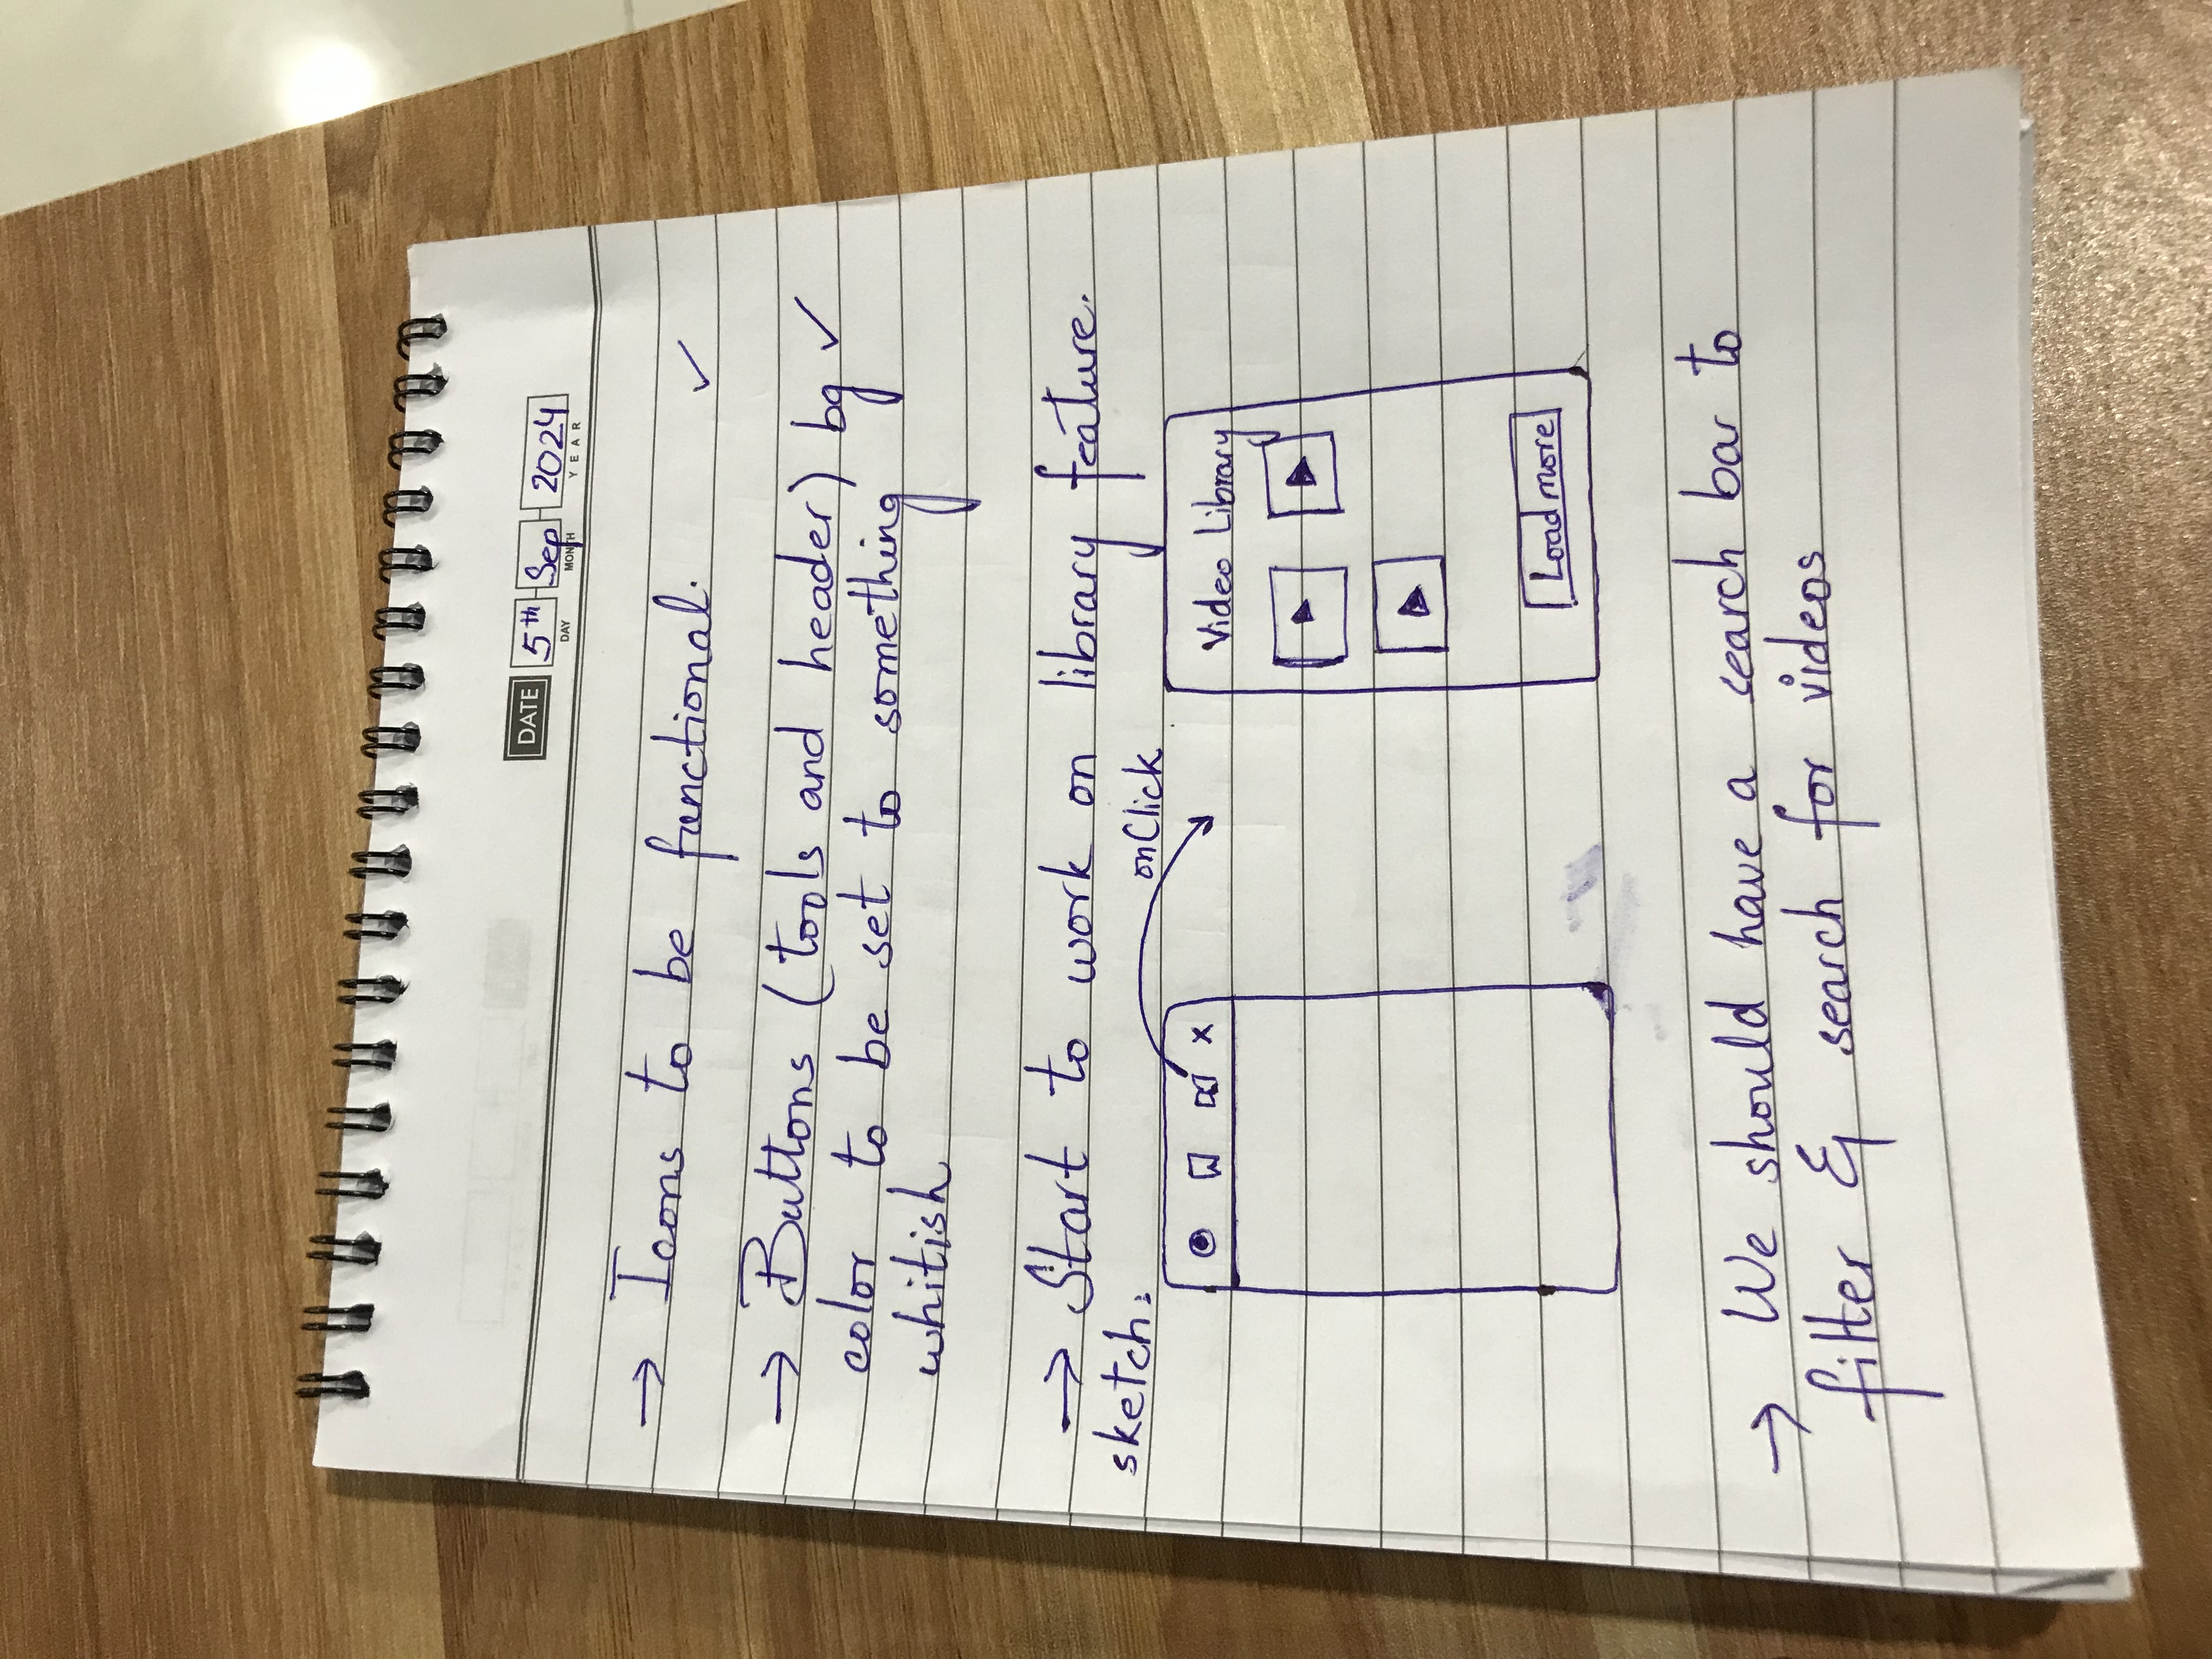 DATE 5th Sep 2024
DAY MONTH YEAR
→ Icons to be functional. ✓
→ Buttons (tools and header) bg ✓
color to be set to something
whitish
→ Start to work on library feature.
sketch:
onClick
x
Video Library
Load more
→ We should have a search bar to
filter & search for videos